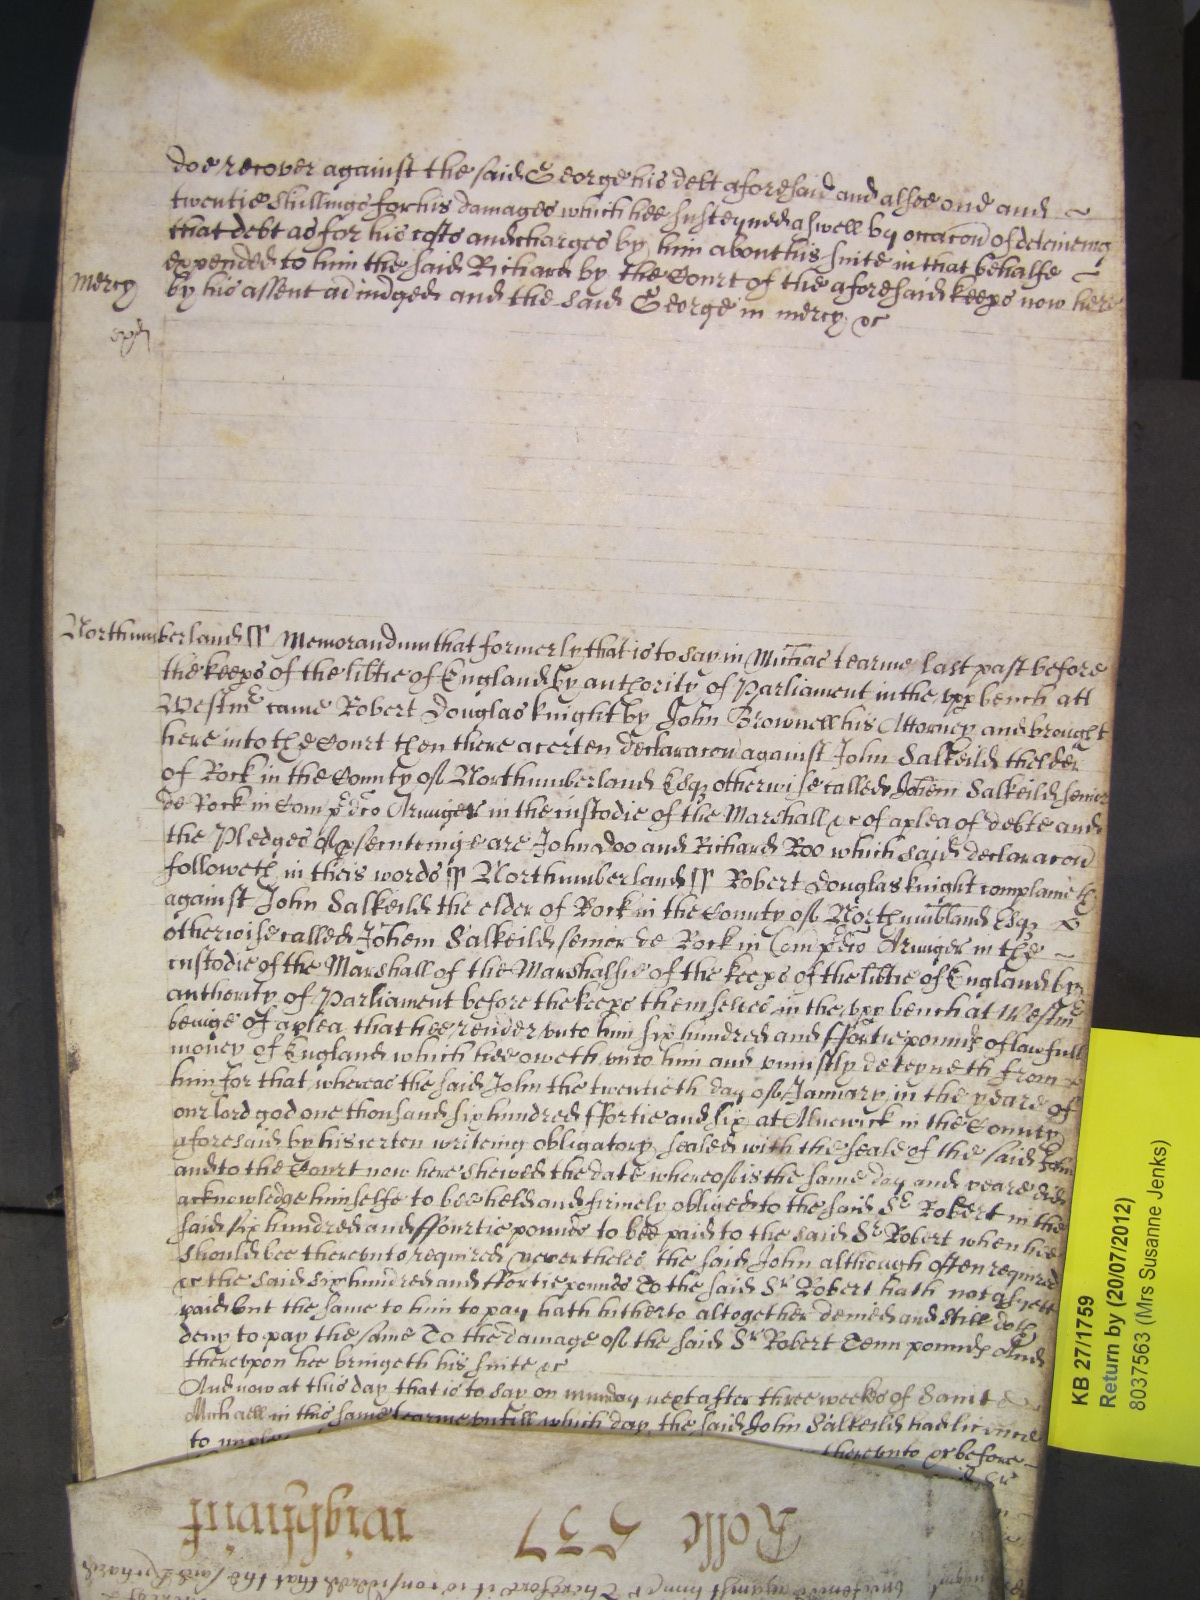 doe recover against the said George his debt aforesaid and alsoe one and
twentie shillings for his damages which hee susteyned aswell by occacon of deteineing
that debt as for his costs and charges by him about his suite in that behalfe
expended to him the said Richard by the Court of the aforesaid keeps now here
Mercy
by his assent adiudged and the said George in mercy &c
Northumberland ss Memorandum that formerly that is to say in Michas tearme last past before
the keeps of the libtie of England by authority of Parliament in the vpp bench att
Westmr came Robert Douglas knight by John Brownell his Attorney and brought
here into the Court then there a certen declaracon against John Salkeild thelder
of Rock in the County off Northumberland Esqr otherwise called Johem Salkeild senior
de Rock in Com pdco Armiger in the custodie of the Marshall &c of a plea of debte and
the Pledges of psecuteinge are John Doo and Richard Roo which said declaracon
followeth in theis words ss Northumberland ss Robert Douglas knight complaineth
against John Salkeild the elder of Rock in the County off Northumbland Esqr
otherwise called Johem Salkeild senior de Rock in Com pdco Armiger in the
custodie of the Marshall of the Marshalsie of the keeps of the libtie of England by
authority of Parliament before the keeps themselves in the vpp bench at Westmr
beinge of a plea that hee render vnto him six hundred and ffortie pounds of lawfull
money of England which hee oweth vnto him and vniustly deteyneth from
him for that whereas the said John the twentieth day off January in the yeare of
our lord god one thousand six hundred ffortie and six at Alnewick in the County
aforesaid by his certen writeing obligatory sealed with the seale of the said John
and to the Court now here shewed the date whereoff is the same day and yeare did
acknowledge himselfe to bee held and firmely obliged to the said Sr Robert in the
said six hundred and ffourtie pounds to bee paid to the said Sr Robert when hee
should bee therevnto required neverthelес the said John although often required
&c the said six hundred and ffortie pounds To the said Sr Robert hath not as yett
paid but the same to him to pay hath hitherto altogether denied and still doth
deny to pay the same To the damage off the said Sr Robert Tenn pounds And
therevpon hee bringeth his suite &c
And now at this day that is to say on munday next after three weeks of Saint
Michaell in this same tearme vntill which day the said John Salkeild had licence
to therevnto or before
KB 27/1759
Return by (20/07/2012)
8037563 (Mrs Susanne Jenks)
Rolle 557 wightwick
therefore it is considered that the said Richard